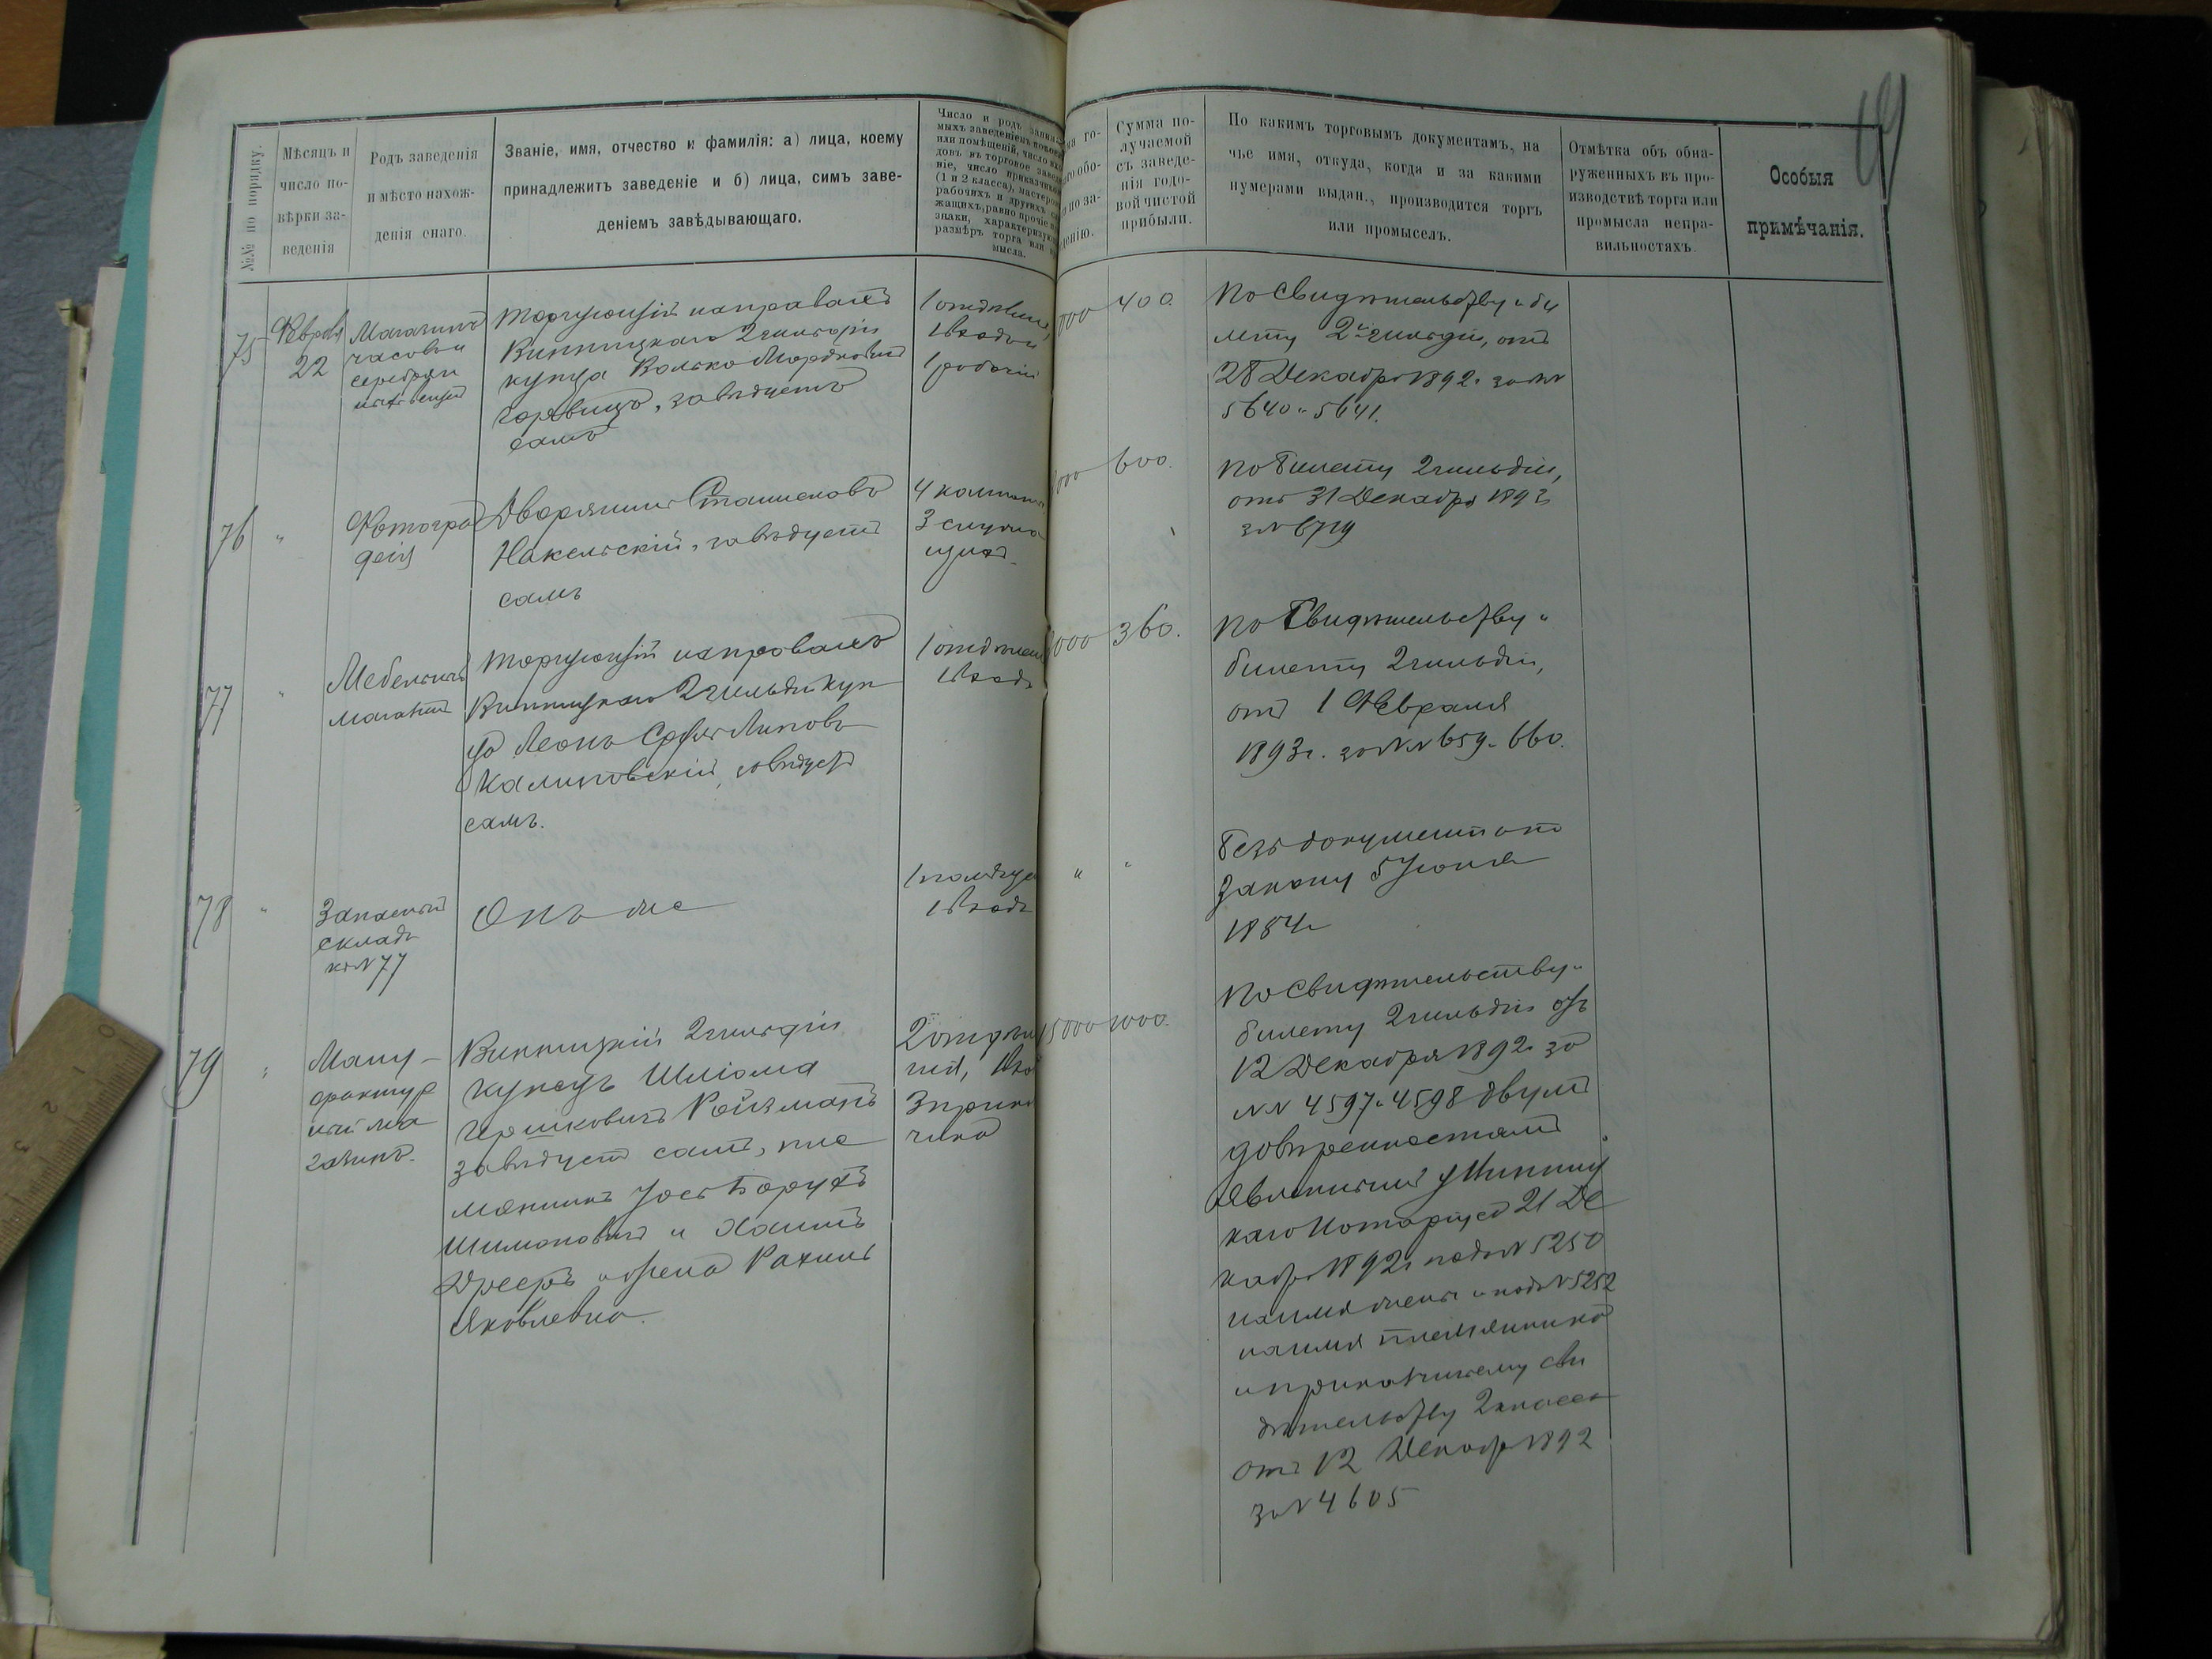 19
№№ по порядку.
Мѣсяцъ и
число по-
вѣрки за-
веденія
Родъ заведенія
и мѣсто нахож-
денія онаго.
Званіе, имя, отчество и фамилія: а) лица, коему
принадлежитъ заведеніе и б) лица, симъ заве-
деніемъ завѣдывающаго.
Число и родъ
мыхъ заведеніемъ
или помѣщеній, число
довъ въ торговое
ніе, число приказчиковъ
(1 и 2 класса), мастеровъ
рабочихъ и другихъ
жащихъ, равно прочіе
знаки,
размѣръ торга или
мысла.
Сумма по-
лучаемой
съ заведе-
нія годо-
вой чистой
прибыли.
По какимъ торговымъ документамъ, на
чье имя, откуда, когда и за какими
нумерами выдан., производится торгъ
или промыселъ.
Отмѣтка объ обна-
руженныхъ въ про-
изводствѣ торга или
промысла непра-
вильностяхъ.
Особыя
примѣчанія.
75
22
Магазинъ
часовъ и
серебрян
Торгующій на правахъ
Винницкаго 2 гильдіи
купца Волько Мордковичъ
завѣдуетъ
самъ
1 отдѣленіе,
1 входъ
1 рабочій
000
400.
По Свидѣтельству и би
лету 2й гильдіи, отъ
28 Декабря 1892г. за №№
5640 и 5641.
76
"
Фотогра
фія
Дворянинъ Станиславъ
Накельскій, завѣдуетъ
самъ
4 комнаты
3
000
600.
По билету 2 гильдіи,
отъ 31 Декабря 1892г
за № 6719
77
"
Мебельный
магазинъ
Торгующій на правахъ
Винницкаго 2 гильдіи куп
ца Леонъ
Калиновскій, завѣдуетъ
самъ.
1 отдѣлен
1 входъ
000
360.
По Свидѣтельству и
билету 2 гильдіи,
отъ 1 Февраля
1893г. за №№ 659 и 660.
78
"
Запасный
складъ
къ № 77
Онъ же
1 входъ
"
"
Безъ документ. по
закону 5 Іюня
1884г
79
"
Ману-
фактур
ный ма
газинъ.
Винницкій 2 гильдіи
купецъ Шліома
Гершковичъ Ройзманъ
завѣдуетъ самъ, пле
мянникъ Іось Борухъ
Шимоновичъ и Хаимъ
и жена Рахиль
Яковлевна.
2 отдѣле
ній, 1 вхо
3 прика
чика
15000
1000.
По Свидѣтельству и
билету 2 гильдіи отъ
12 Декабря 1892г за
№№ 4597 и 4598 двумъ
довѣренностямъ
явленнымъ у Винниц
каго Нотаріуса 21 Де
кабря 1892г подъ № 5250
на имя жены и подъ № 5252
на имя племянника
и приказчичьему сви
дѣтельству 2 класса
отъ 12 Декабря 1892
за № 4605